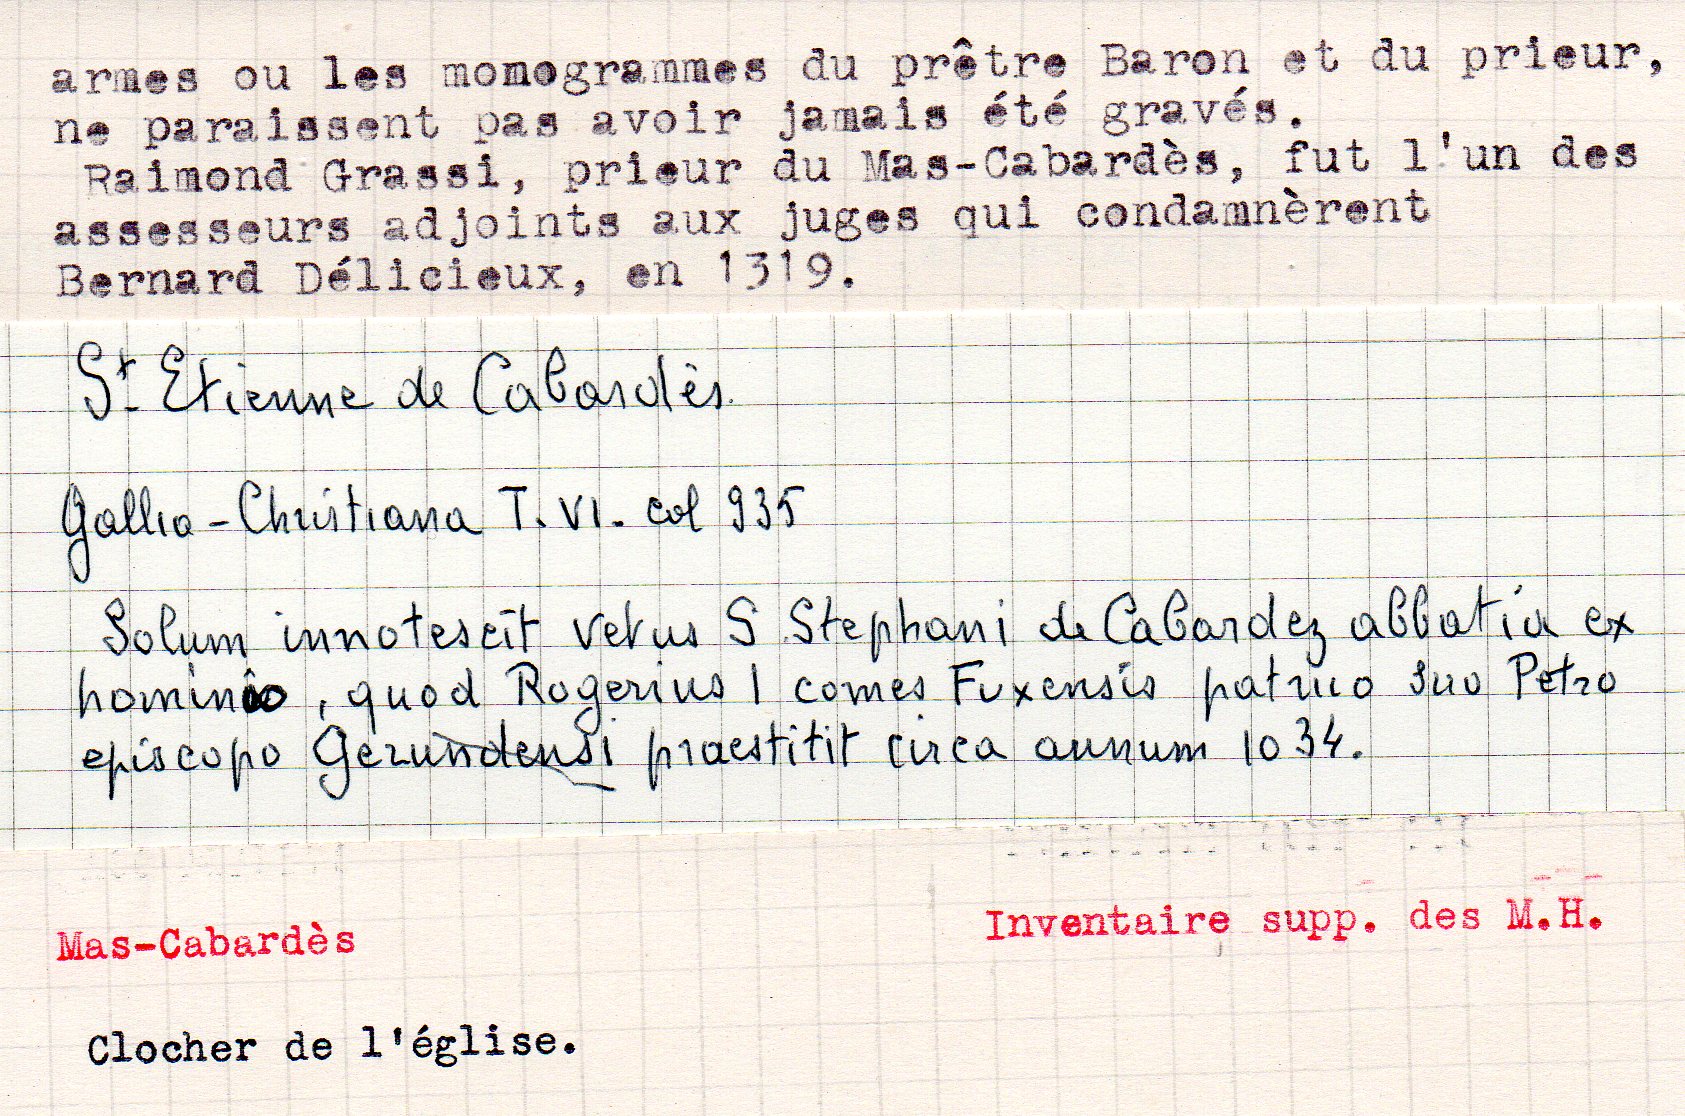 armes ou les monogrammes du prêtre Baron et du prieur,
ne paraissent pas avoir jamais été gravés.
Raimond Grassi, prieur du Mas-Cabardès, fut l'un des
assesseurs adjoints aux juges qui condamnèrent
Bernard Délicieux, en 1319.
St Etienne de Cabardès.
Gallia-Christiana T. VI. col 935
Solum innotescit vetus S. Stephani de Cabardez abbatia ex
hominio, quod Rogerius I comes Fuxensis patruo suo Petro
episcopo Gerundensi praestitit circa annum 1034.
Mas-Cabardès
Inventaire supp. des M.H.
Clocher de l'église.